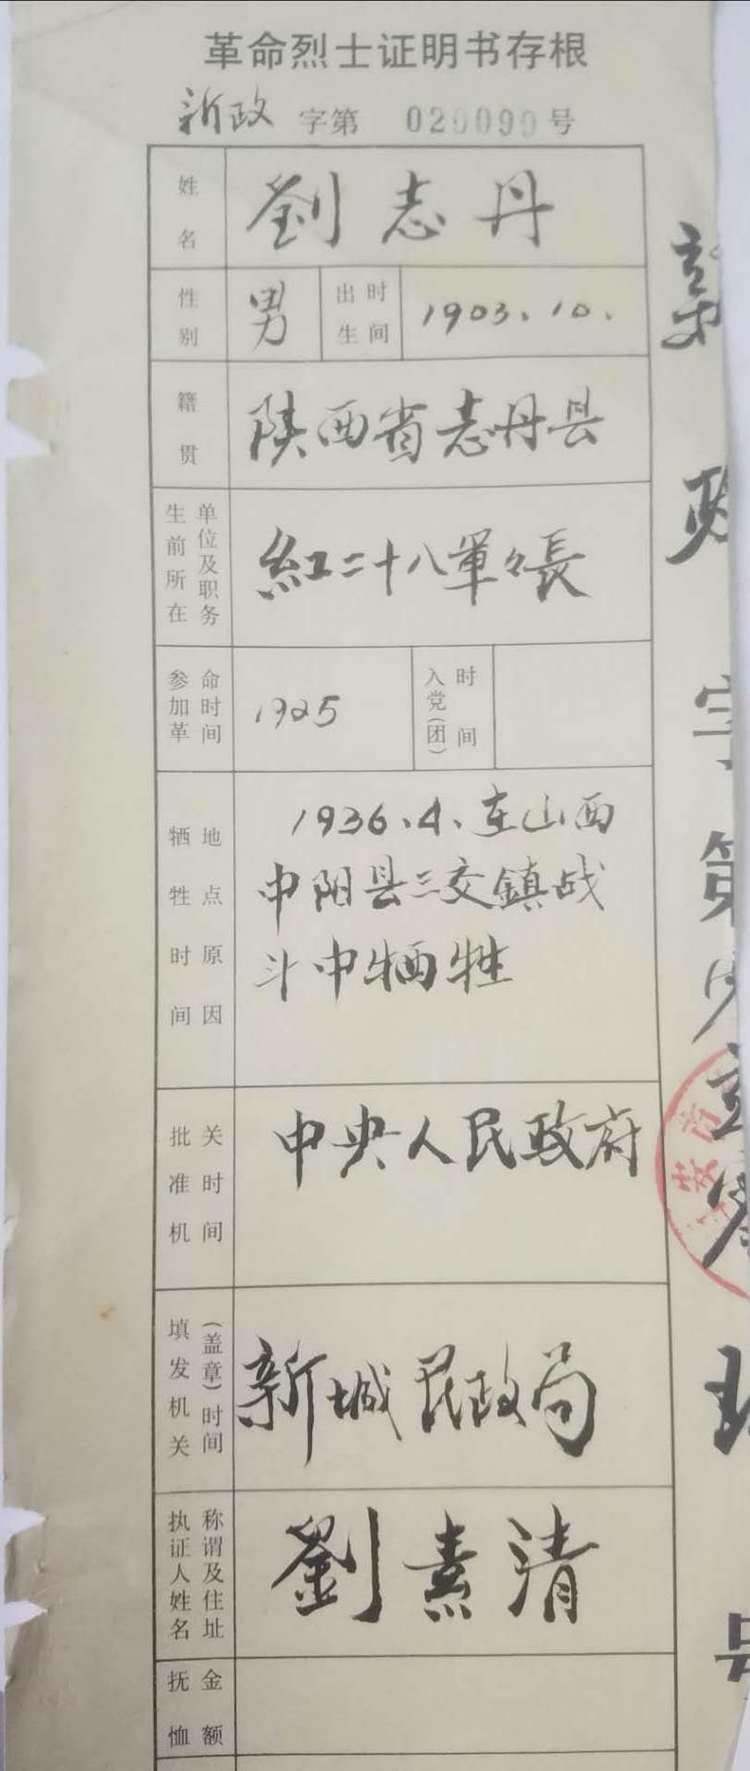 革命烈士证明书存根
新政 字第 020099 号
姓名 劉志丹
性别 男 出生时间 1903.10.
籍贯 陕西省志丹县
生前所在单位及职务 紅二十八軍々長
参加革命时间 1925 入党(团)时间
牺牲时间地点原因 1936.4.在山西
中阳县三交鎮战
斗中牺牲
批准机关时间 中央人民政府
填发机关(盖章)时间 新城民政局
执证人姓名称谓及住址 劉素清
抚恤金额
字第